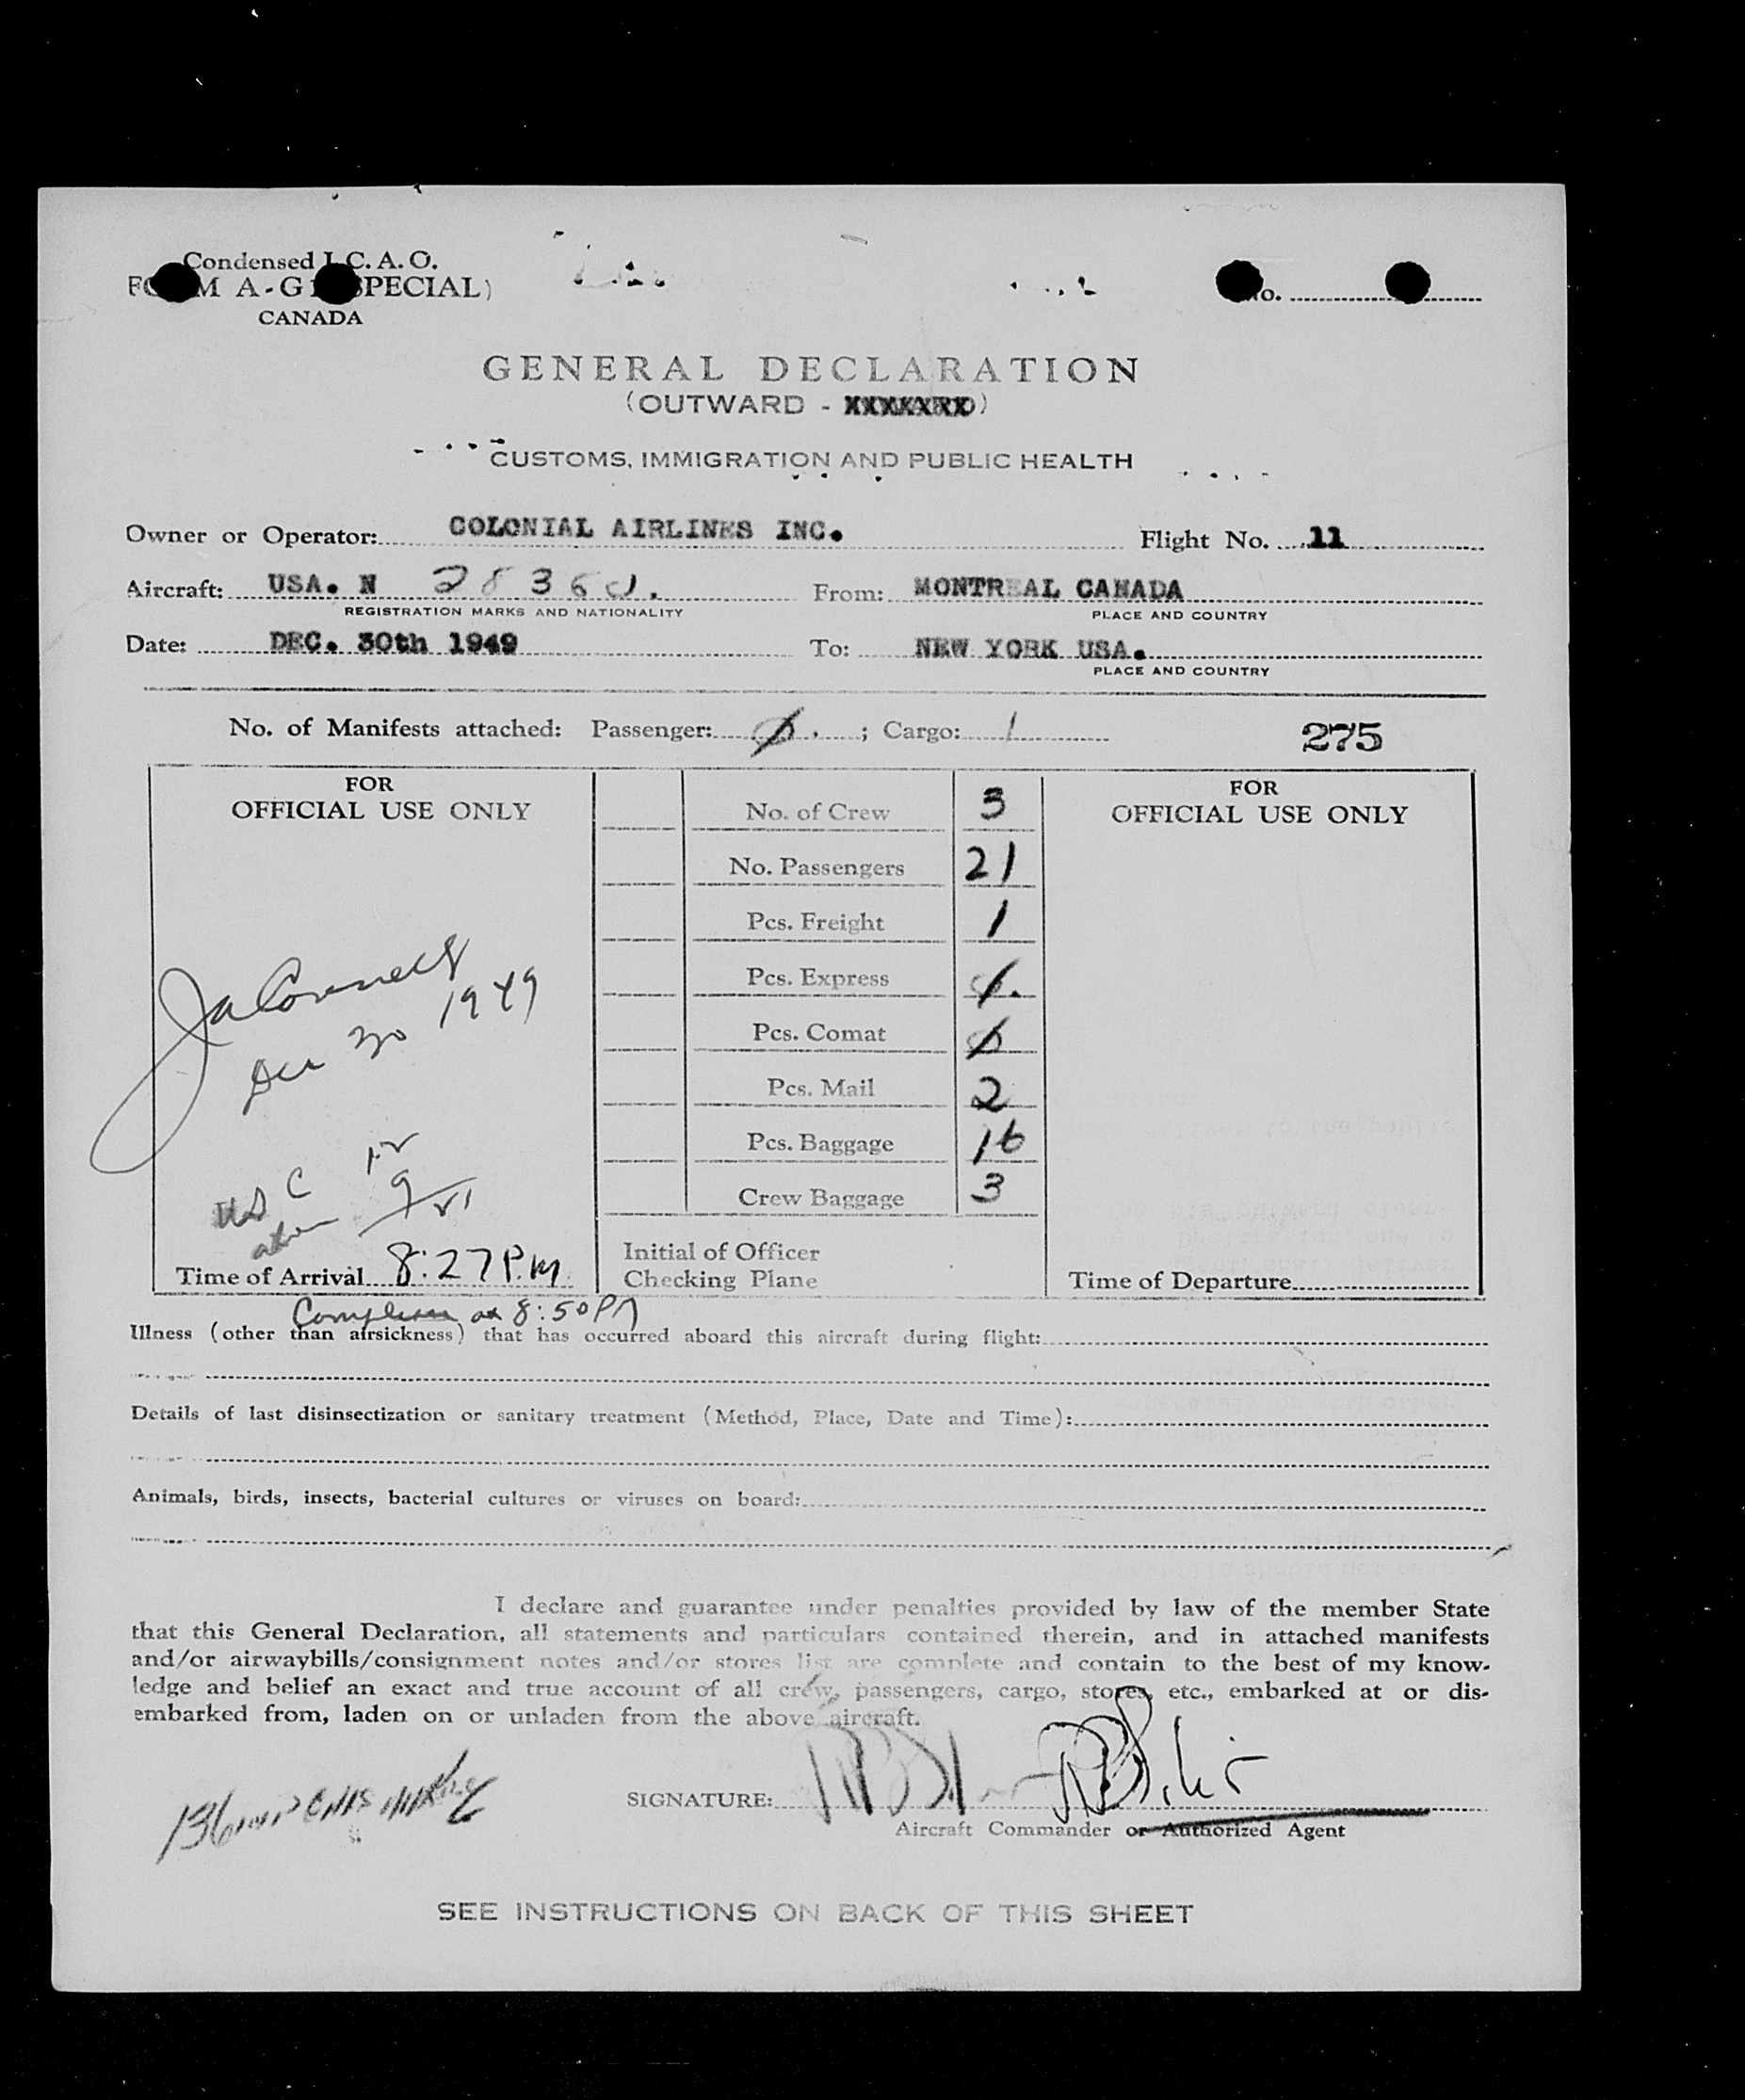 Condensed I.C.A.O.
FORM A-G1 (SPECIAL)
CANADA
No.
GENERAL DECLARATION
(OUTWARD - XXXXXXX)
CUSTOMS, IMMIGRATION AND PUBLIC HEALTH
Owner or Operator: COLONIAL AIRLINES INC. Flight No. 11
Aircraft: USA. N 28360. From: MONTREAL CANADA
REGISTRATION MARKS AND NATIONALITY PLACE AND COUNTRY
Date: DEC. 30th 1949 To: NEW YORK USA.
PLACE AND COUNTRY
No. of Manifests attached: Passenger: 0. ; Cargo: 1 275
FOR
OFFICIAL USE ONLY
No. of Crew 3
No. Passengers 21
Pcs. Freight 1
Pcs. Express
Pcs. Comat 0
Pcs. Mail 2
Pcs. Baggage 16
Crew Baggage 3
Initial of Officer
Checking Plane
FOR
OFFICIAL USE ONLY
Dec 30 1949
Time of Arrival 8:27 P.M.
Time of Departure
at 8:50 PM
Illness (other than airsickness) that has occurred aboard this aircraft during flight:
Details of last disinsectization or sanitary treatment (Method, Place, Date and Time):
Animals, birds, insects, bacterial cultures or viruses on board:
I declare and guarantee under penalties provided by law of the member State
that this General Declaration, all statements and particulars contained therein, and in attached manifests
and/or airwaybills/consignment notes and/or stores list are complete and contain to the best of my know-
ledge and belief an exact and true account of all crew, passengers, cargo, stores, etc., embarked at or dis-
embarked from, laden on or unladen from the above aircraft.
SIGNATURE:
Aircraft Commander or Authorized Agent
SEE INSTRUCTIONS ON BACK OF THIS SHEET